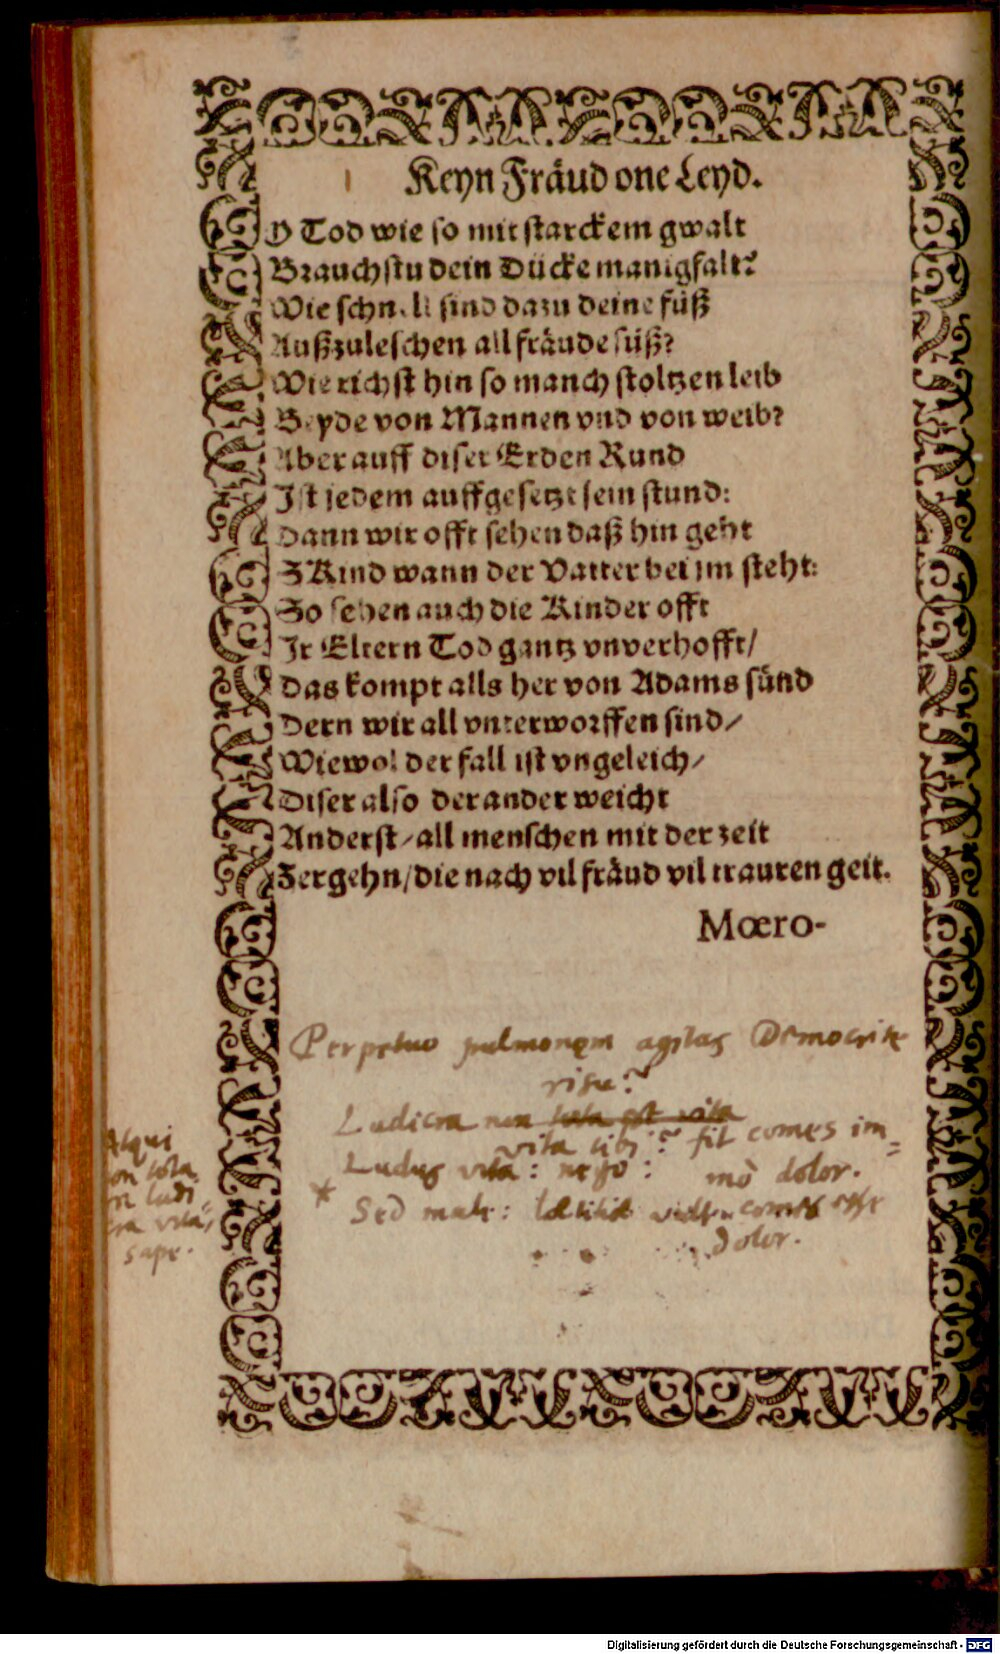 Keyn Fräud one Leyd.
O Tod wie so mit starckem gwalt
Brauchstu dein Dücke manigfalt?
Wie schnell sind dazu deine füß
Außzuleschen all fräude süß?
Wie richst hin so manch stoltzen leib
Beyde von Mannen vnd von weib?
Aber auff diser Erden Rund
Ist jedem auffgesetzt sein stund:
Dann wir offt sehen daß hin geht
Z Kind wann der Vatter bei im steht:
So sehen auch die Kinder offt
Ir Eltern Tod gantz vnverhofft/
Das kompt alls her von Adams sünd
Dern wir all vnterworffen sind/
Wiewol der fall ist vngeleich/
Diser also der ander weicht
Anderst/all menschen mit der zeit
Zergehn/die nach vil fräud vil trauren geit.
Mœro-
Perpetuo pulmonem agitas Democrite
risu?
Ludicra non tota est vita
vita tibi? fit comes im=
Ludus vita: nego: mò dolor.
* Sed male: comes esse
dolor.
Atqui
non tota
ludi=
cra vita,
sape.
Digitalisierung gefördert durch die Deutsche Forschungsgemeinschaft - DFG